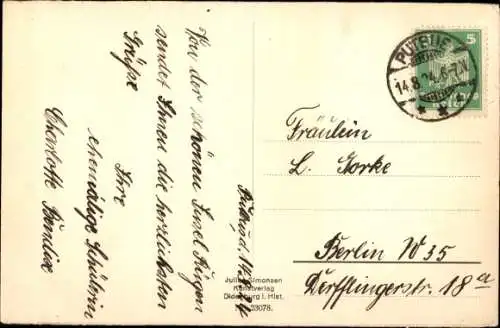 Von der schönen Insel Rügen
sendet Ihnen die herzlichsten
Grüße
Ihre
ehemalige Schülerin
Charlotte
Putbus, d.
Julius Simonsen
Kunstverlag
Oldenburg i. Hlst.
23078.
PUTBUS
14.8.24. 6-7N
5
Deutsches
Reich
Fräulein
L. Gorke
Berlin W 35
Derfflingerstr. 18a